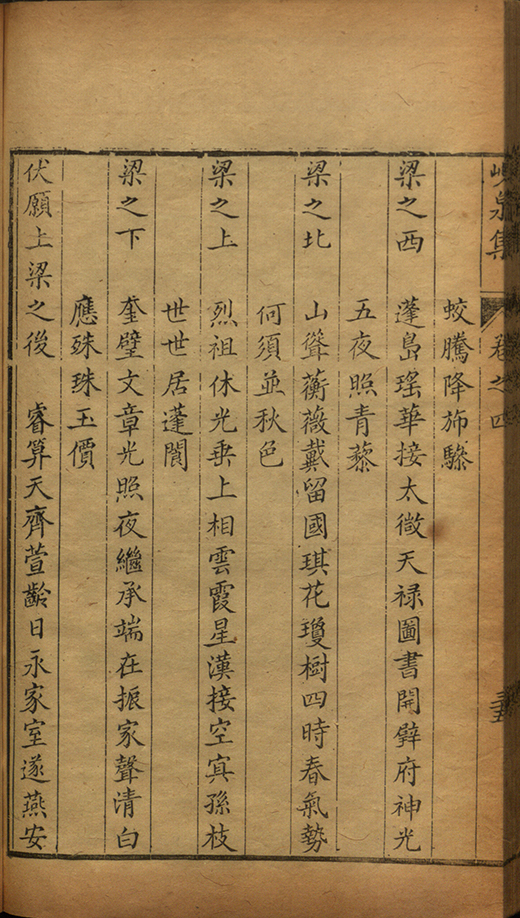 峴泉集 卷之四
蛟騰降斾驂
梁之西 蓬島瑤華接太微天禄圖書開壁府神光
五夜照青藜
梁之北 山聳蘅薇戴留國琪花瓊樹四時春氣勢
何須並秋色
梁之上 烈祖休光垂上相雲霞星漢接空寘孫枝
世世居蓬閬
梁之下 奎璧文章光照夜繼承端在振家聲清白
應殊珠玉價
伏願上梁之後 睿算天齊萱齡日永家室遂燕安